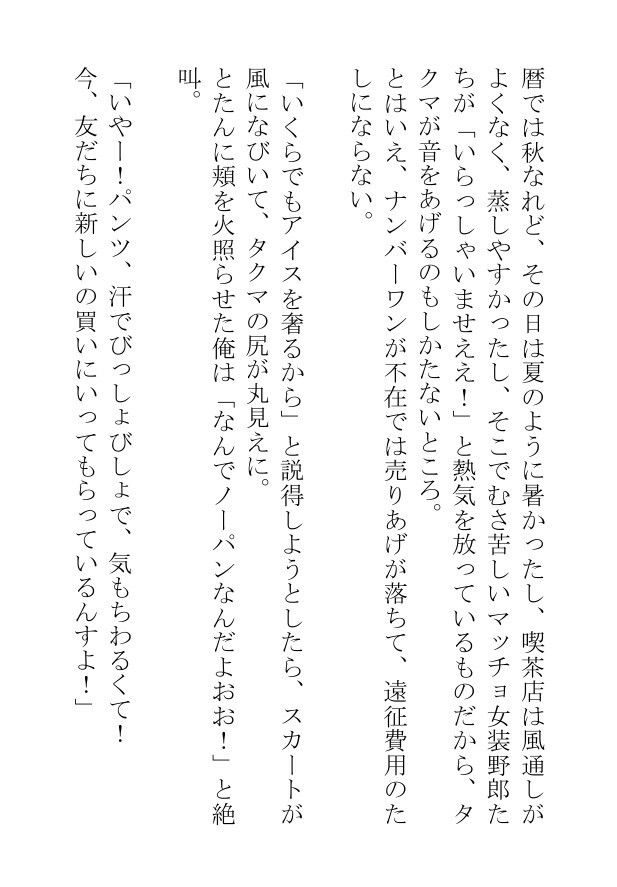 暦では秋なれど、その日は夏のように暑かったし、喫茶店は風通しが
よくなく、蒸しやすかったし、そこでむさ苦しいマッチョ女装野郎た
ちが「いらっしゃいませええ！」と熱気を放っているものだから、タ
クマが音をあげるのもしかたないところ。
とはいえ、ナンバーワンが不在では売りあげが落ちて、遠征費用のた
しにならない。
「いくらでもアイスを奢るから」と説得しようとしたら、スカートが
風になびいて、タクマの尻が丸見えに。
とたんに頬を火照らせた俺は「なんでノーパンなんだよおお！」と絶
叫。
「いやー！パンツ、汗でびっしょびしょで、気もちわるくて！
今、友だちに新しいの買いにいってもらっているんすよ！」